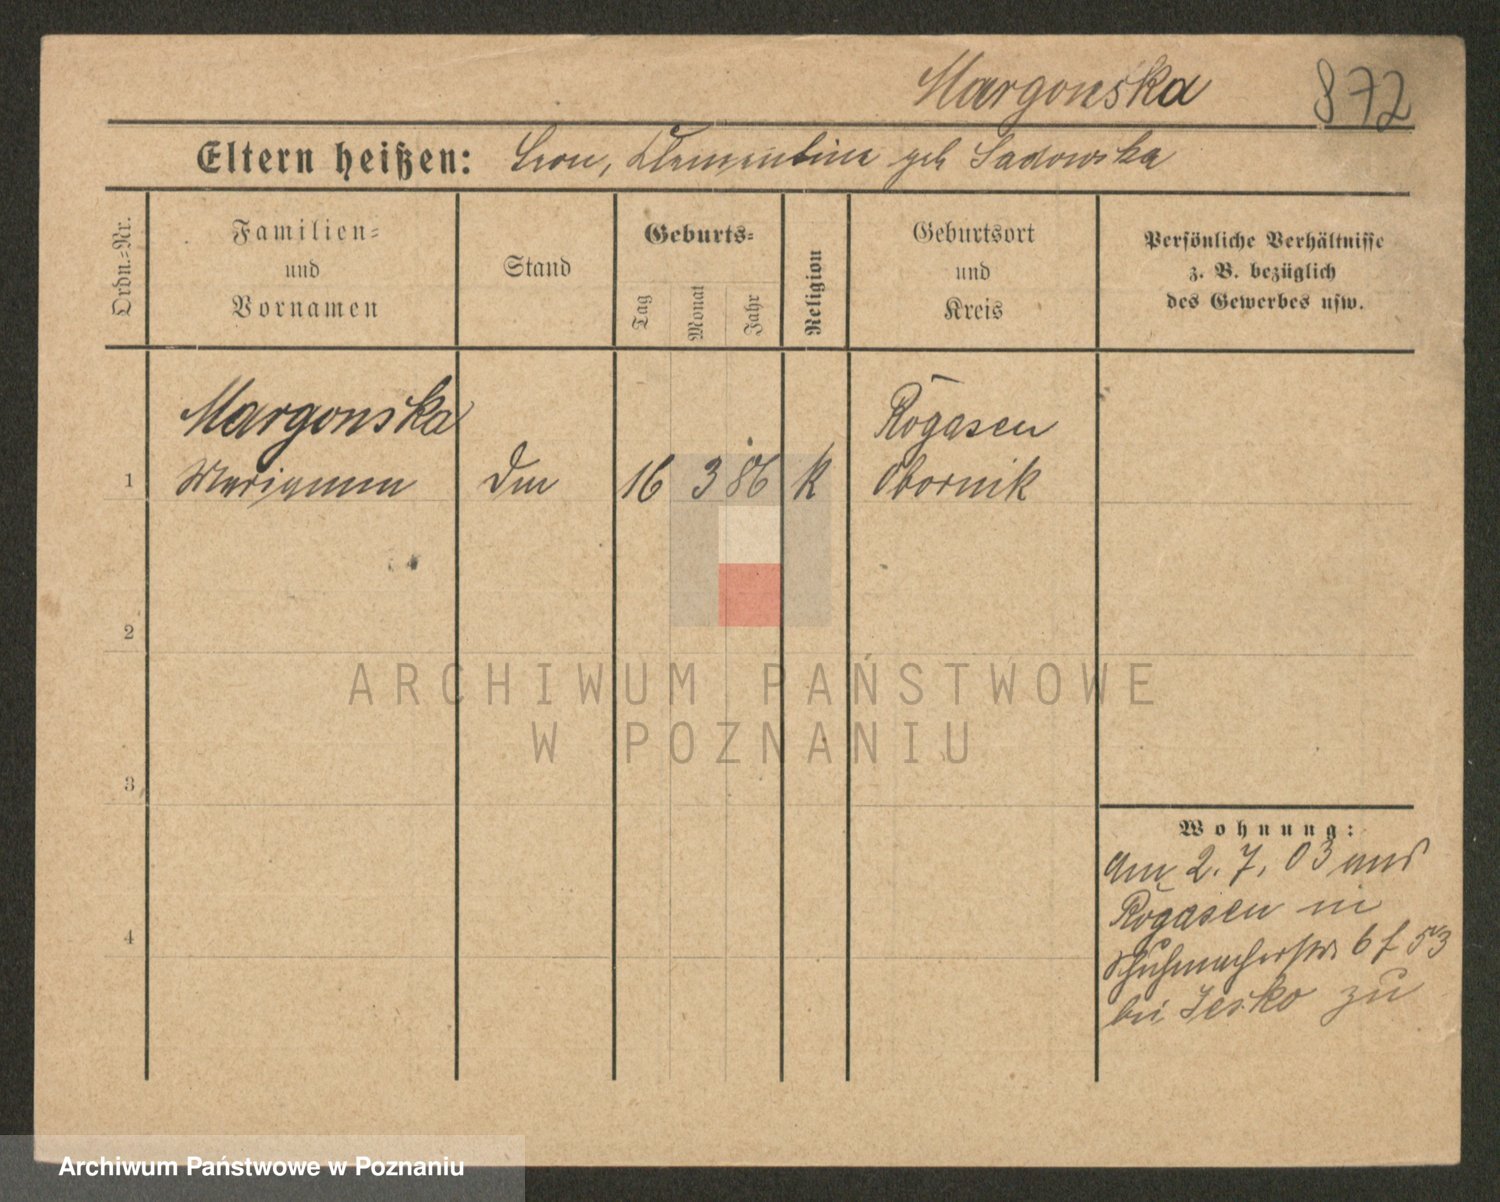 Margonska
872
Eltern heißen: Leon, Klementine geb Sadowska
Ordn.-Nr.
Familien-
und
Vornamen
Stand
Geburts-
Tag
Monat
Jahr
Religion
Geburtsort
und
Kreis
Persönliche Verhältnisse
z. B. bezüglich
des Gewerbes usw.
Margonska Rogasen
1 Marianna 16 3 86 K Obornik
2
3
4
Wohnung:
am 2. 7. 03 aus
Rogasen in
Schuhmacherstr. 6 f 53
bei Jesko zu
ARCHIWUM PAŃSTWOWE
W POZNANIU
Archiwum Państwowe w Poznaniu